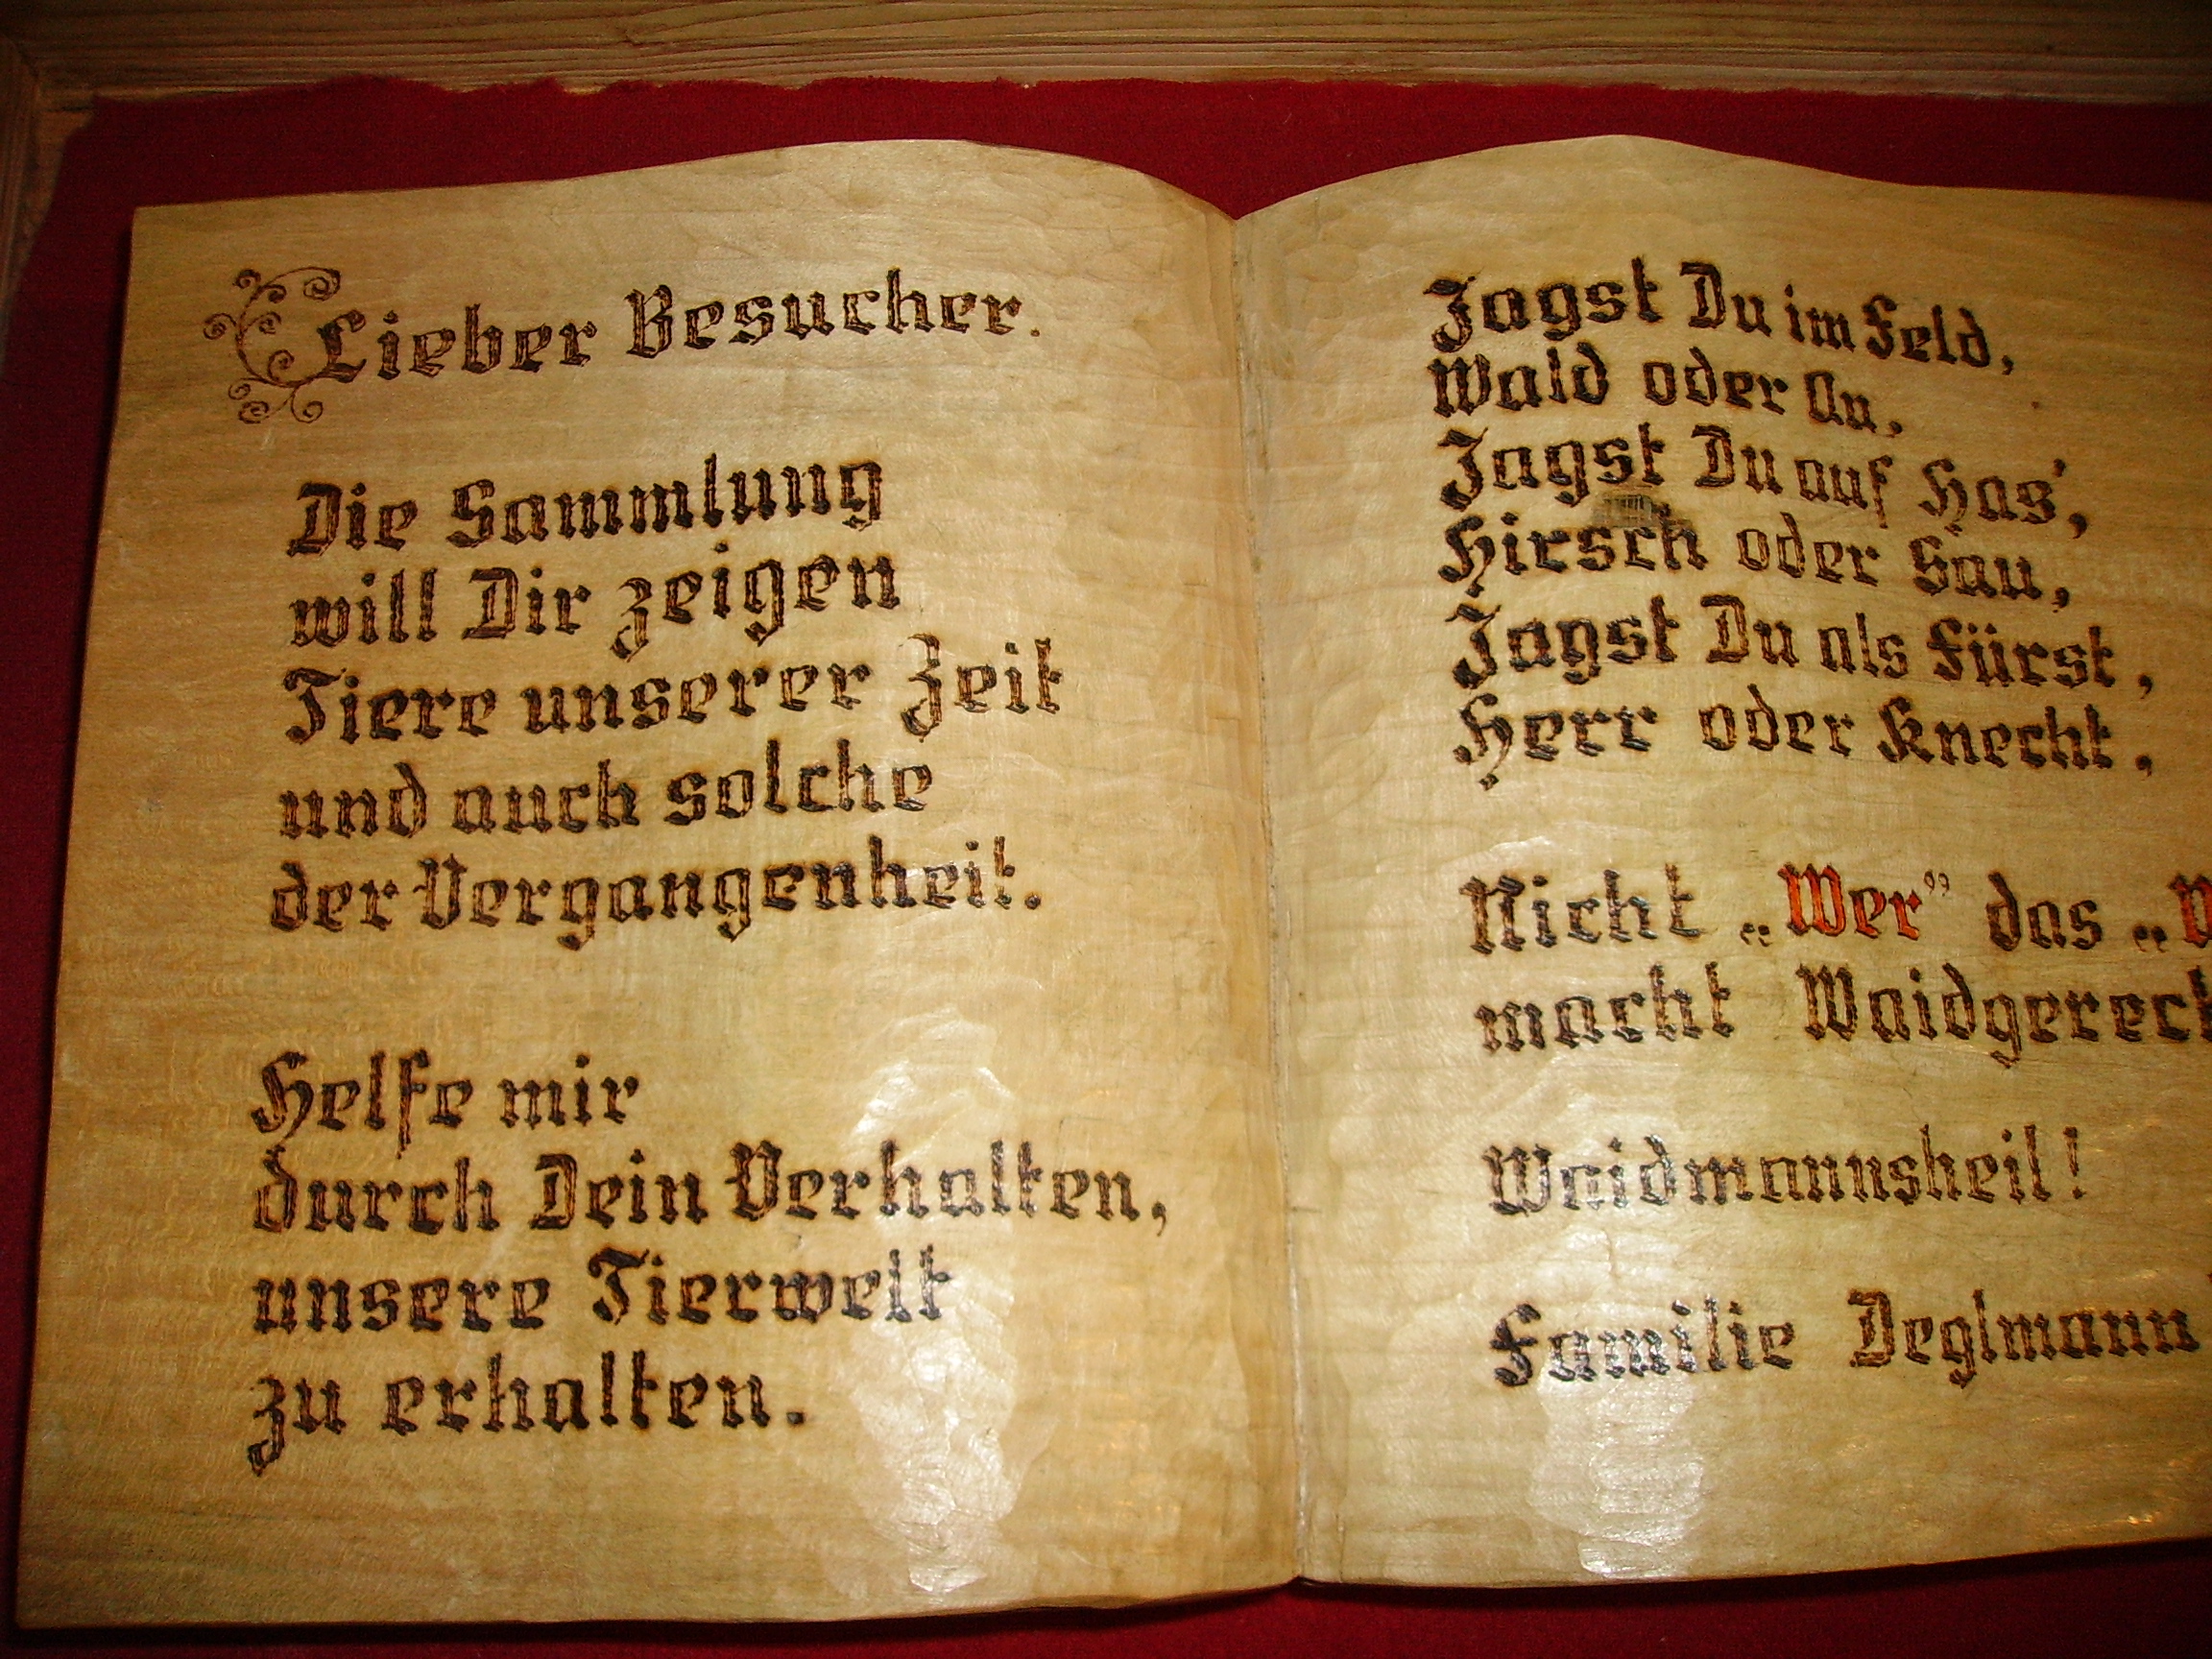 Lieber Besucher.
Die Sammlung
will Dir zeigen
Tiere unserer Zeit
und auch solche
der Vergangenheit.
Helfe mir
durch Dein Verhalten,
unsere Tierwelt
zu erhalten.
Jagst Du im Feld,
Wald oder Au,
Jagst Du auf Has',
Hirsch oder Sau,
Jagst Du als Fürst,
Herr oder Knecht,
Nicht „Wer” das „
macht Waidgerech
Waidmannsheil!
Familie Deglmann